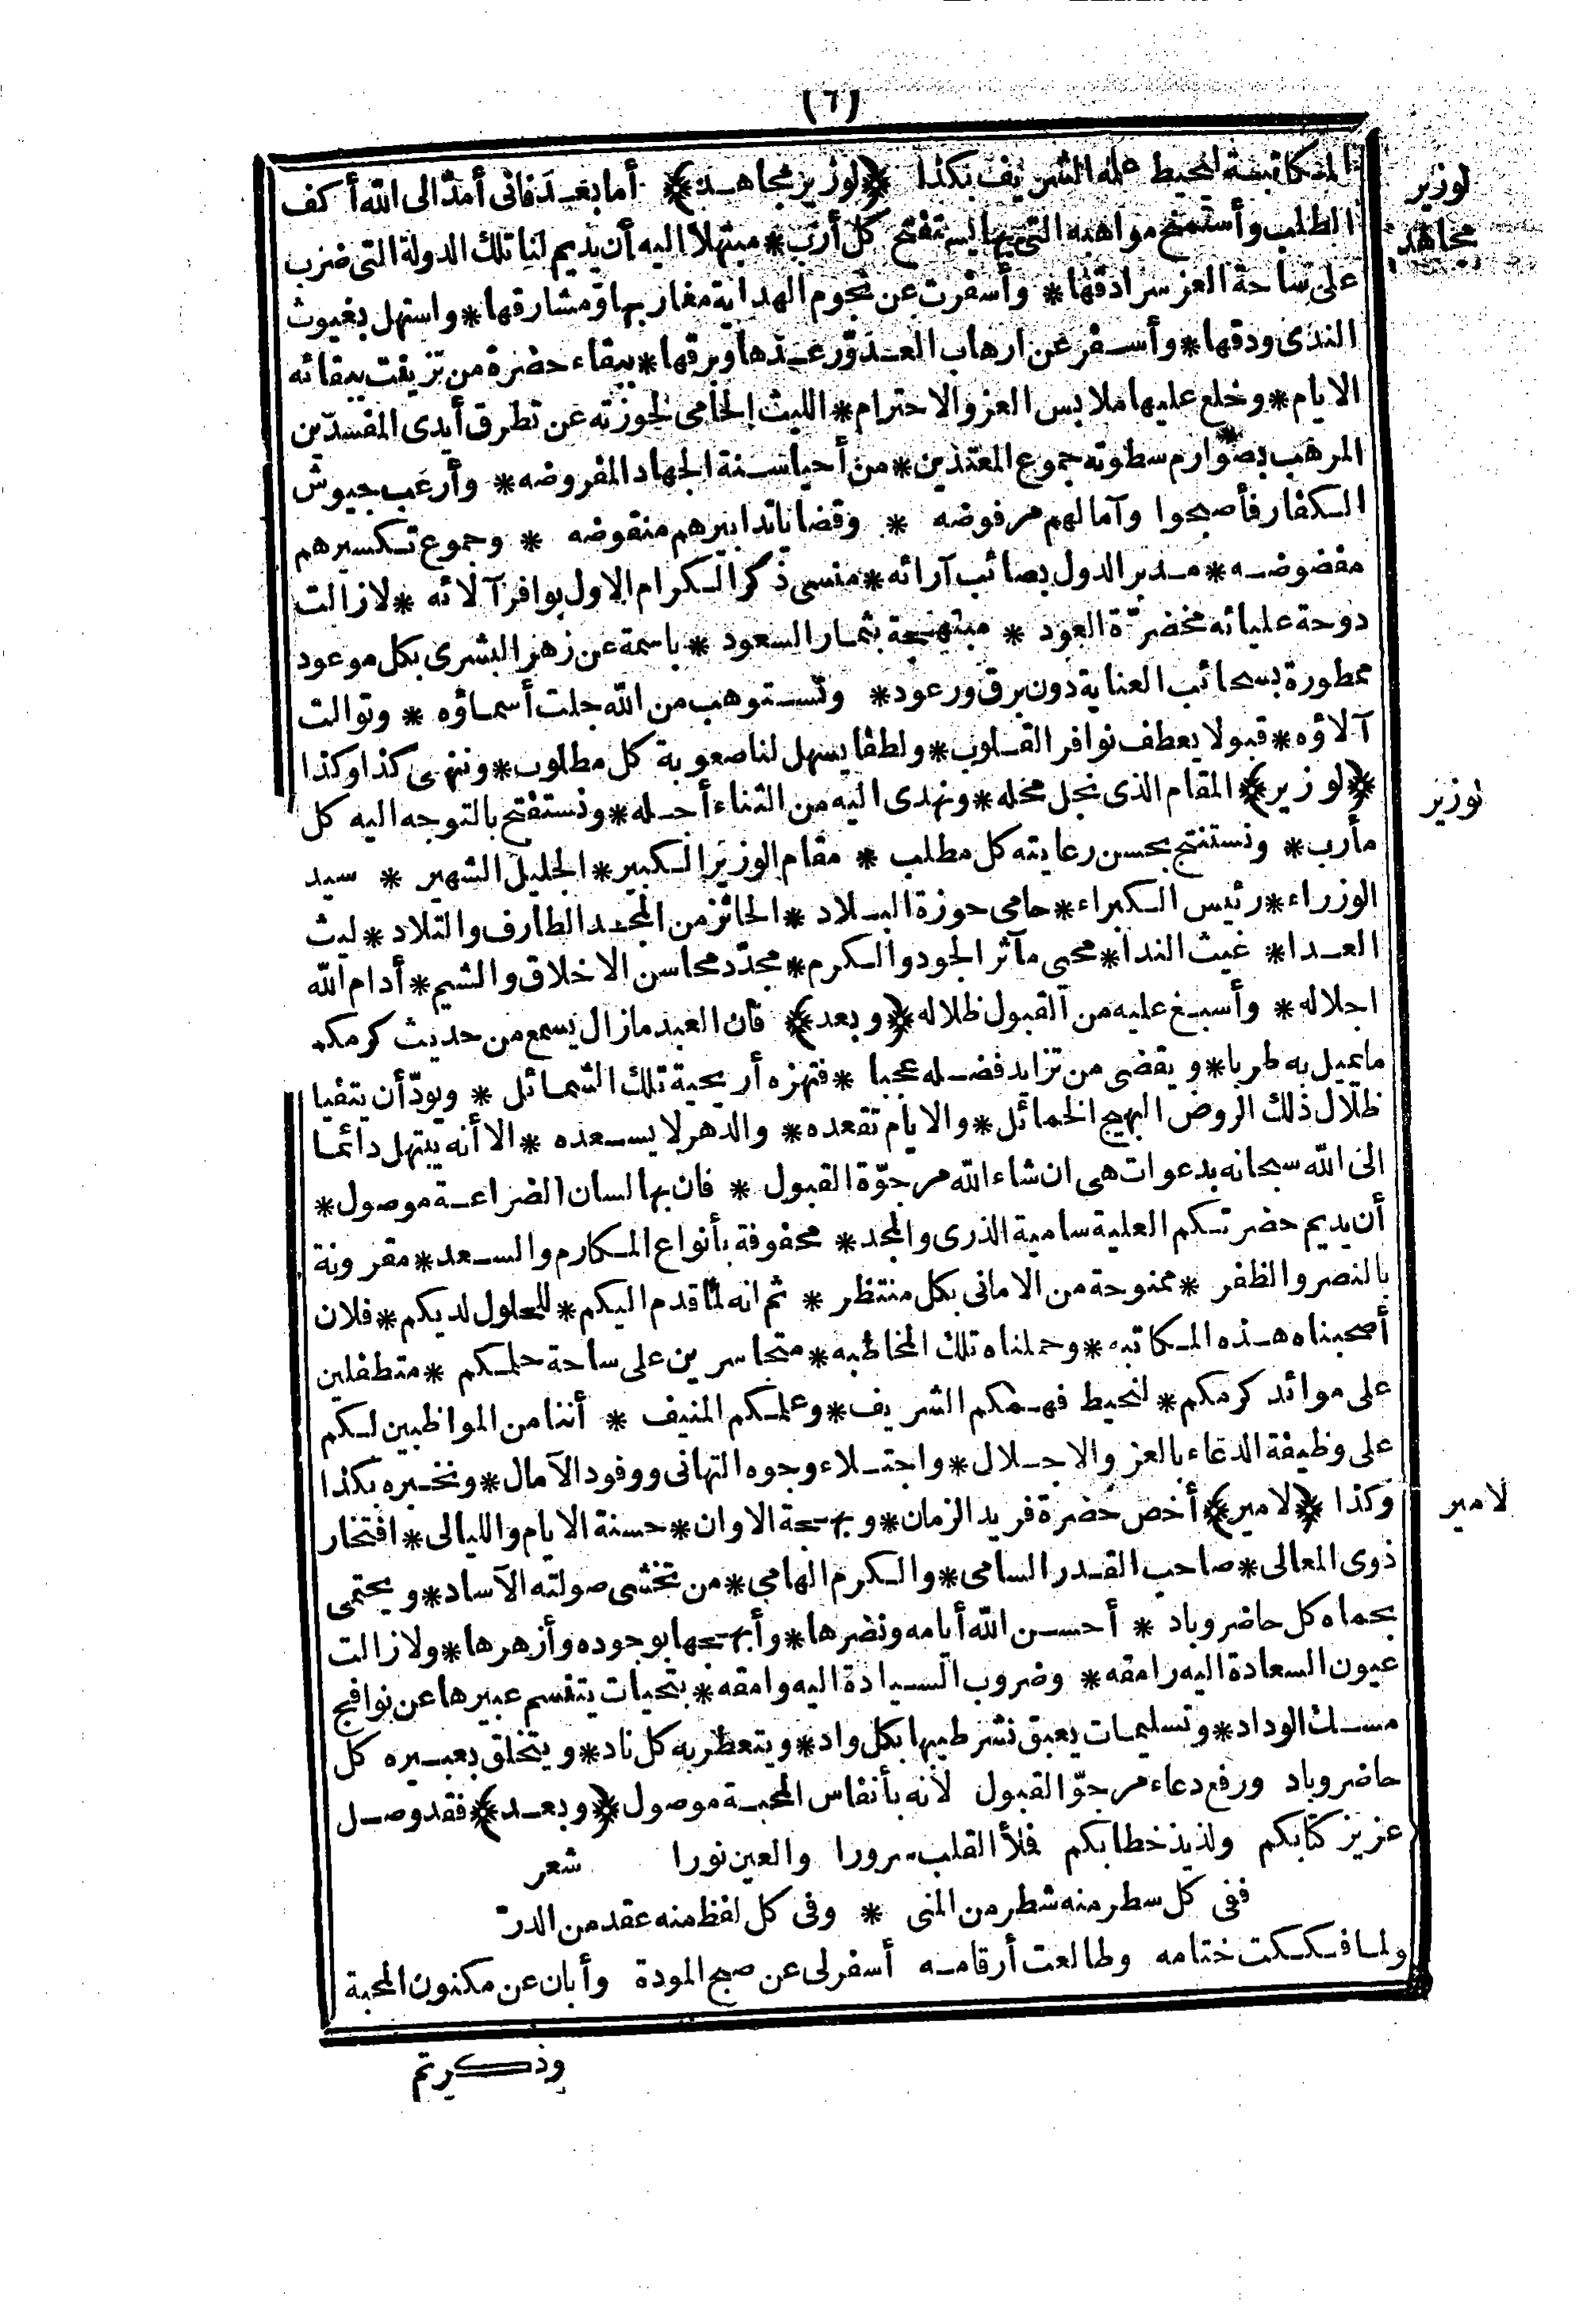 (٦)
المكاتبة ليحيط علمه الشريف بكذا ﴿لوزير مجاهد﴾ أما بعد فانى أمدّ الى الله أكف
لوزير
مجاهد
الطلب وأستمنح مواهبه التى بها يستفتح كل أرب * مبتهلا اليه أن يديم لنا تلك الدولة التى ضرب
على ساحة العز سرادقها * وأسفرت عن نجوم الهداية مغاربها ومشارقها * واستهل بغيوث
الندى ودقها * وأسفر عن ارهاب العدوّ رعدها وبرقها * ببقاء حضرة من تزينت ببقائه
الايام * وخلع عليها ملابس العز والاحترام * الليث الحامى لحوزته عن تطرق أيدى المفسدين
المرهب بصوارم سطوته جموع المعتدين * من أحيا سنة الجهاد المفروضه * وأرعب جيوش
الكفار فأصبحوا وآمالهم مرفوضه * وقضايا تدابيرهم منقوضه * وجموع تكسيرهم
مفضوضه * مدبر الدول بصائب آرائه * منسى ذكر الكرام الاول بوافر آلائه * لازالت
دوحة عليائه مخضرّة العود * مبتهجة بثمار السعود * باسمة عن زهر البشرى بكل موعود
ممطورة بسحائب العناية دون برق ورعود * ونستوهب من الله جلت أسماؤه * وتوالت
آلاؤه * قبولا يعطف نوافر القلوب * ولطفا يسهل لنا صعوبة كل مطلوب * وننهى كذا وكذا
﴿لوزير﴾ المقام الذى نجل محله * ونهدى اليه من الثناء أحله * ونستفتح بالتوجه اليه كل
لوزير
مأرب * ونستنتج بحسن رعايته كل مطلب * مقام الوزير الكبير * الجليل الشهير * سيد
الوزراء * رئيس الكبراء * حامى حوزة البلاد * الحائز من المجد الطارف والتلاد * ليث
العدا * غيث الندا * محيى مآثر الجود والكرم * مجدّد محاسن الاخلاق والشيم * أدام الله
اجلاله * وأسبغ عليه من القبول ظلاله ﴿وبعد﴾ فان العبد مازال يسمع من حديث كرمكم
ما يميل به طربا * ويقضى من تزايد فضله عجبا * فتهزه أريحية تلك الشمائل * ويودّ أن يتفيا
ظلال ذلك الروض البهيج الخمائل * والايام تقعده * والدهر لا يسعده * الا أنه يبتهل دائما
الى الله سبحانه بدعوات هى ان شاء الله مرجوّة القبول * فان بها لسان الضراعة موصول *
أن يديم حضرتكم العلية سامية الذرى والمجد * محفوفة بأنواع المكارم والسعد * مقرونة
بالنصر والظفر * ممنوحة من الامانى بكل منتظر * ثم انه لما قدم اليكم * للحلول لديكم * فلان
أصحبناه هذه المكاتبه * وحملناه تلك المخاطبه * متجاسرين على ساحة حلمكم * متطفلين
على موائد كرمكم * لنحيط فهمكم الشريف * وعلمكم المنيف * أننا من المواظبين لكم
على وظيفة الدعاء بالعز والاجلال * واجتلاء وجوه التهانى ووفود الآمال * ونخبره بكذا
وكذا ﴿لامير﴾ أخص حضرة فريد الزمان * وبهجة الاوان * حسنة الايام والليالى * افتخار
لامير
ذوى المعالى * صاحب القدر السامى * والكرم الهامى * من تخشى صولته الآساد * ويحتمى
بحماه كل حاضر وباد * أحسن الله أيامه ونضرها * وأبهجها بوجوده وأزهرها * ولازالت
عيون السعادة اليه رامقه * وضروب السيادة اليه وامقه * بتحيات يتنسم عبيرها عن نوافج
مسك الوداد * وتسليمات يعبق نشر طيبها بكل واد * ويتعطر به كل ناد * ويتخلق بعبيره كل
حاضر وباد ورفع دعاء مرجوّ القبول لأنه بأنفاس المحبة موصول ﴿وبعد﴾ فقد وصل
عزيز كتابكم ولذيذ خطابكم فملأ القلب سرورا والعين نورا شعر
ففى كل سطر منه شطر من المنى * وفى كل لفظ منه عقد من الدرّ
ولما فككت ختامه وطالعت أرقامه أسفر لى عن صبح المودة وأبان عن مكنون المحبة
وذكرتم